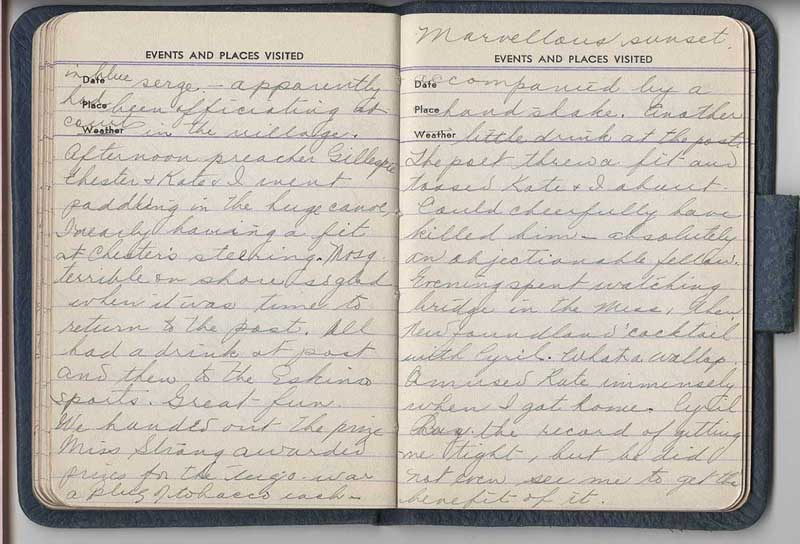 EVENTS AND PLACES VISITED
in blue
Date serge – apparently
Place had been officiating at
Weather court in the village.
Afternoon preacher Gillespie
Chester & Kate & I went
paddling in the huge canoe,
I nearly having a fit
at Chester's steering. Mosq.
terrible on shore so glad
when it was time to
return to the post. All
had a drink at post
and then to the Eskimo
sports. Great fun.
We handed out the prize
Miss Strang awarded
prizes for the tug-o-war
a plug of tobacco each –
Marvellous sunset.
EVENTS AND PLACES VISITED
Date accompanied by a
Place handshake. Another
Weather little drink at the post.
The poet threw a fit and
tossed Kate & I about.
Could cheerfully have
killed him – absolutely
an objectionable fellow.
Evening spent watching
bridge in the Mess, then
Newfoundland 'cocktail
with Cyril. What a wallop.
Amused Kate immensely
when I got home. Cyril
has the record of getting
me tight, but he did
not even see me to get the
benefit of it.